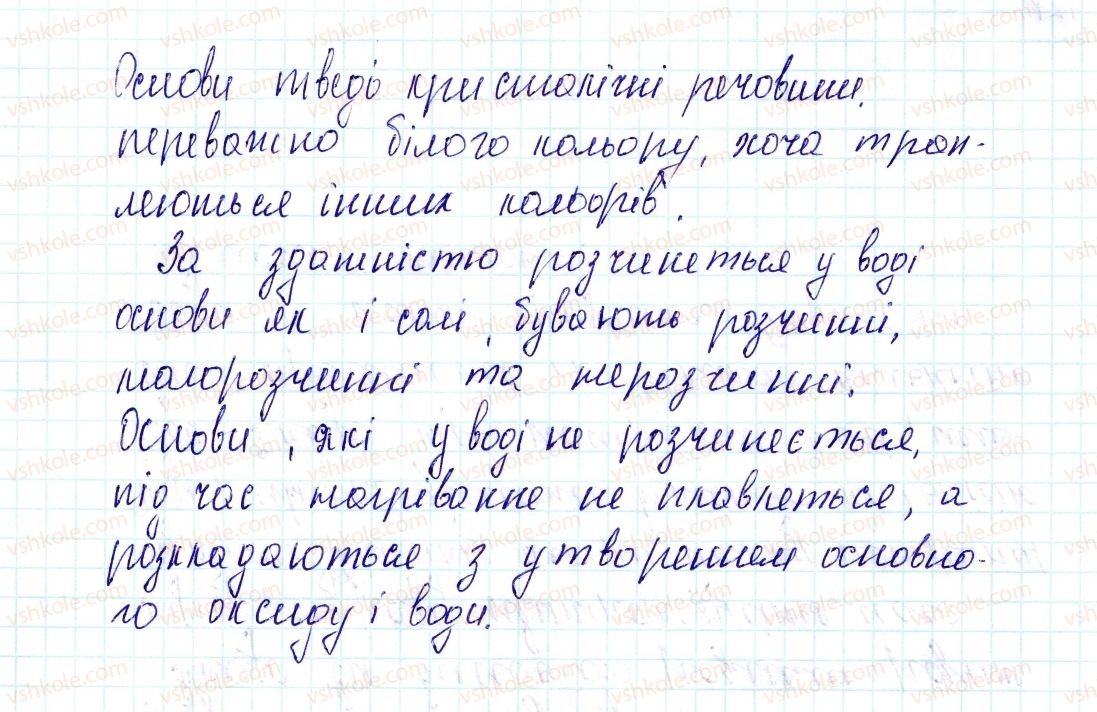 Основи тведі кристалічні речовини.
переважно білого кольору, хоча трап-
леються інших кольорів.
За здатністю розчинеться у воді
основи як і солі, бувають розчинні,
малорозчинні та нерозчинні.
Основи, які у воді не розчинеється,
під час нагріванне не плавлеться, а
розкладаються з утворенням основно-
го оксиду і води.